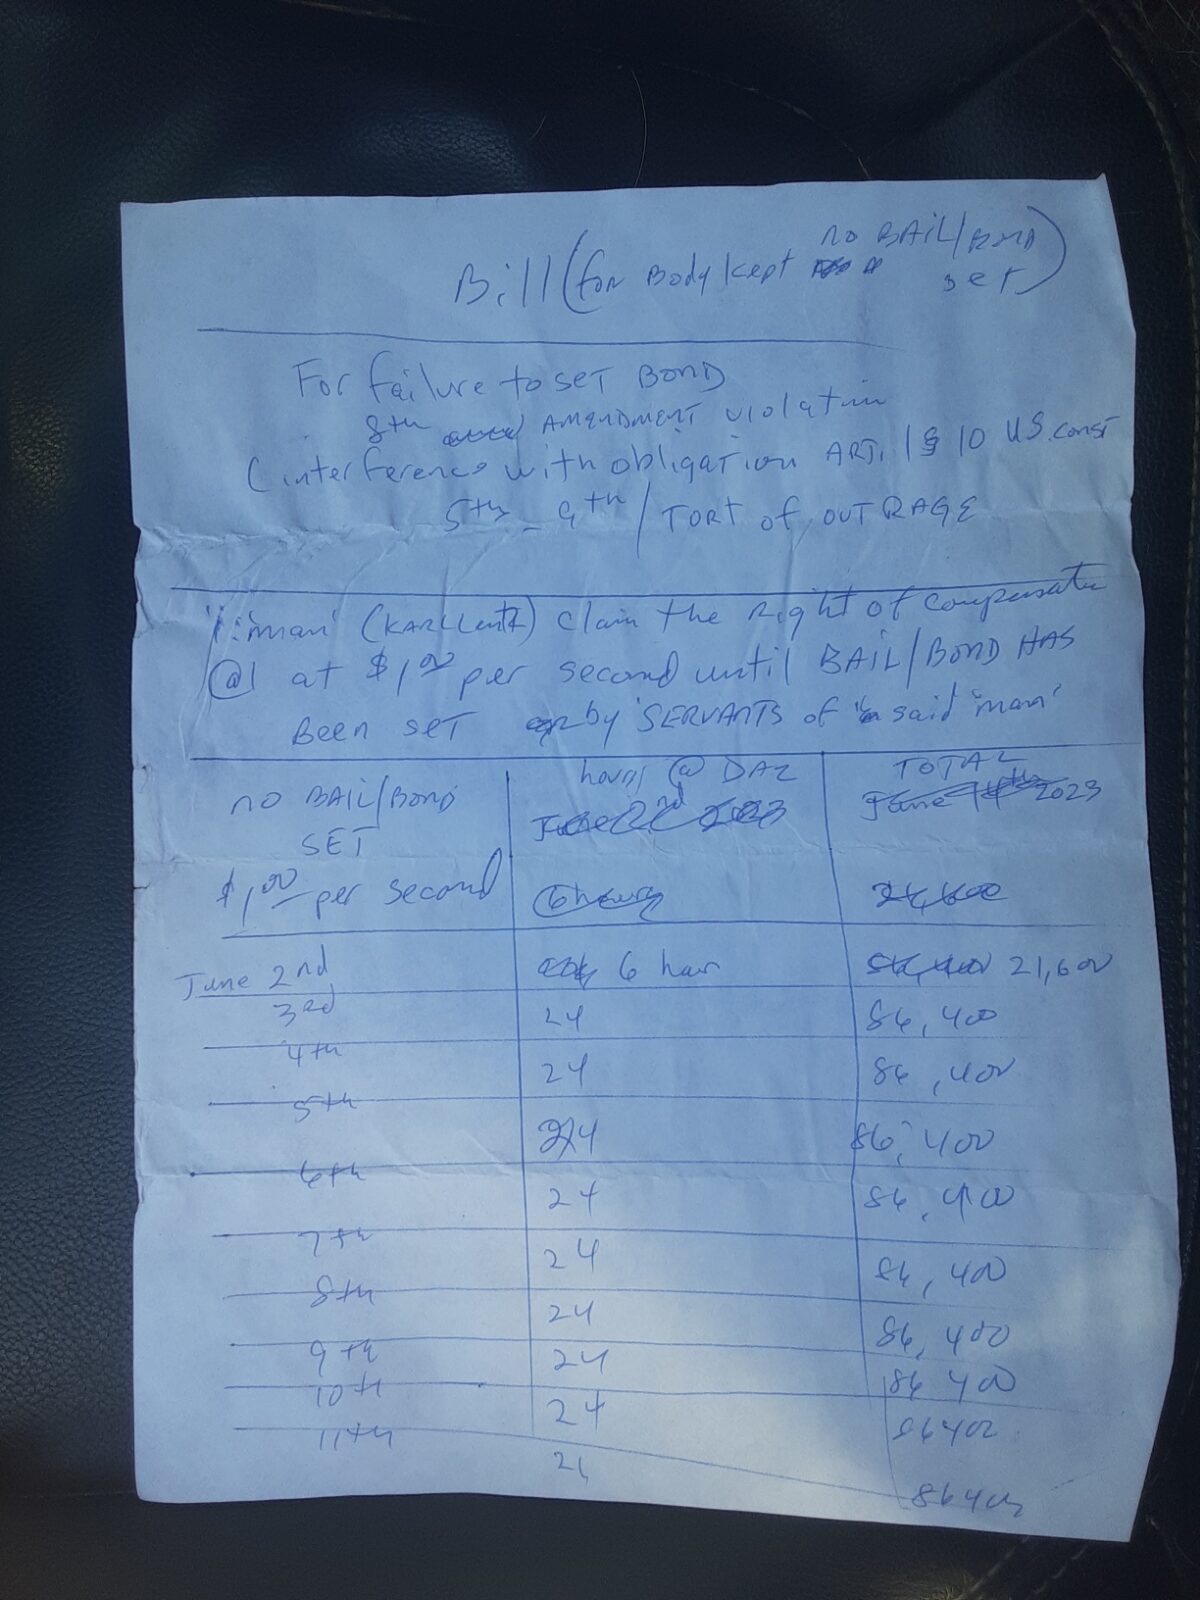 Bill (for Body kept no BAIL/BOND
set)
For failure to SET BOND
8th AMENDMENT violation
(interference with obligation ART. 1 § 10 US. const
5th - 9th / TORT of OUTRAGE
i : 'man' (KARL Lentz) Claim the Right of Compensation
@1 at $1,00 per second until BAIL/BOND HAS
Been set by 'SERVANTS of said 'man'
NO BAIL/BOND hours @ DAZ TOTAL
SET June 2nd 2023 June 11th 2023
$1,00 per second 6 hours
June 2nd 6 hour 21,600
3rd 24 86,400
4th 24 86,400
5th 24 86,400
6th 24 86,400
7th 24 86,400
8th 24 86,400
9th 24 86 400
10th 24 86400
11th 86400